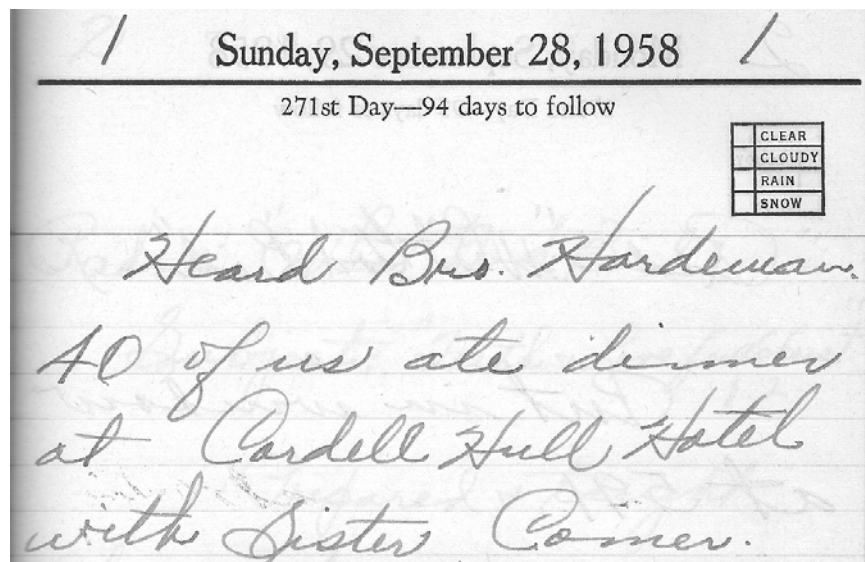 1 Sunday, September 28, 1958 1
271st Day—94 days to follow
CLEAR
CLOUDY
RAIN
SNOW
Heard Bro. Hardeman.
40 of us ate dinner
at Cordell Hull Hotel
with Sister Comer.